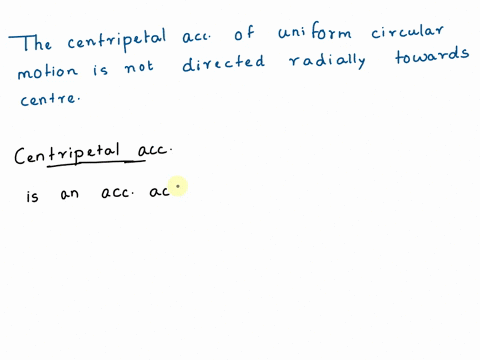 The centripetal acc. of uniform circular
motion is not directed radially towards
centre.
Centripetal acc.
is an acc. ac